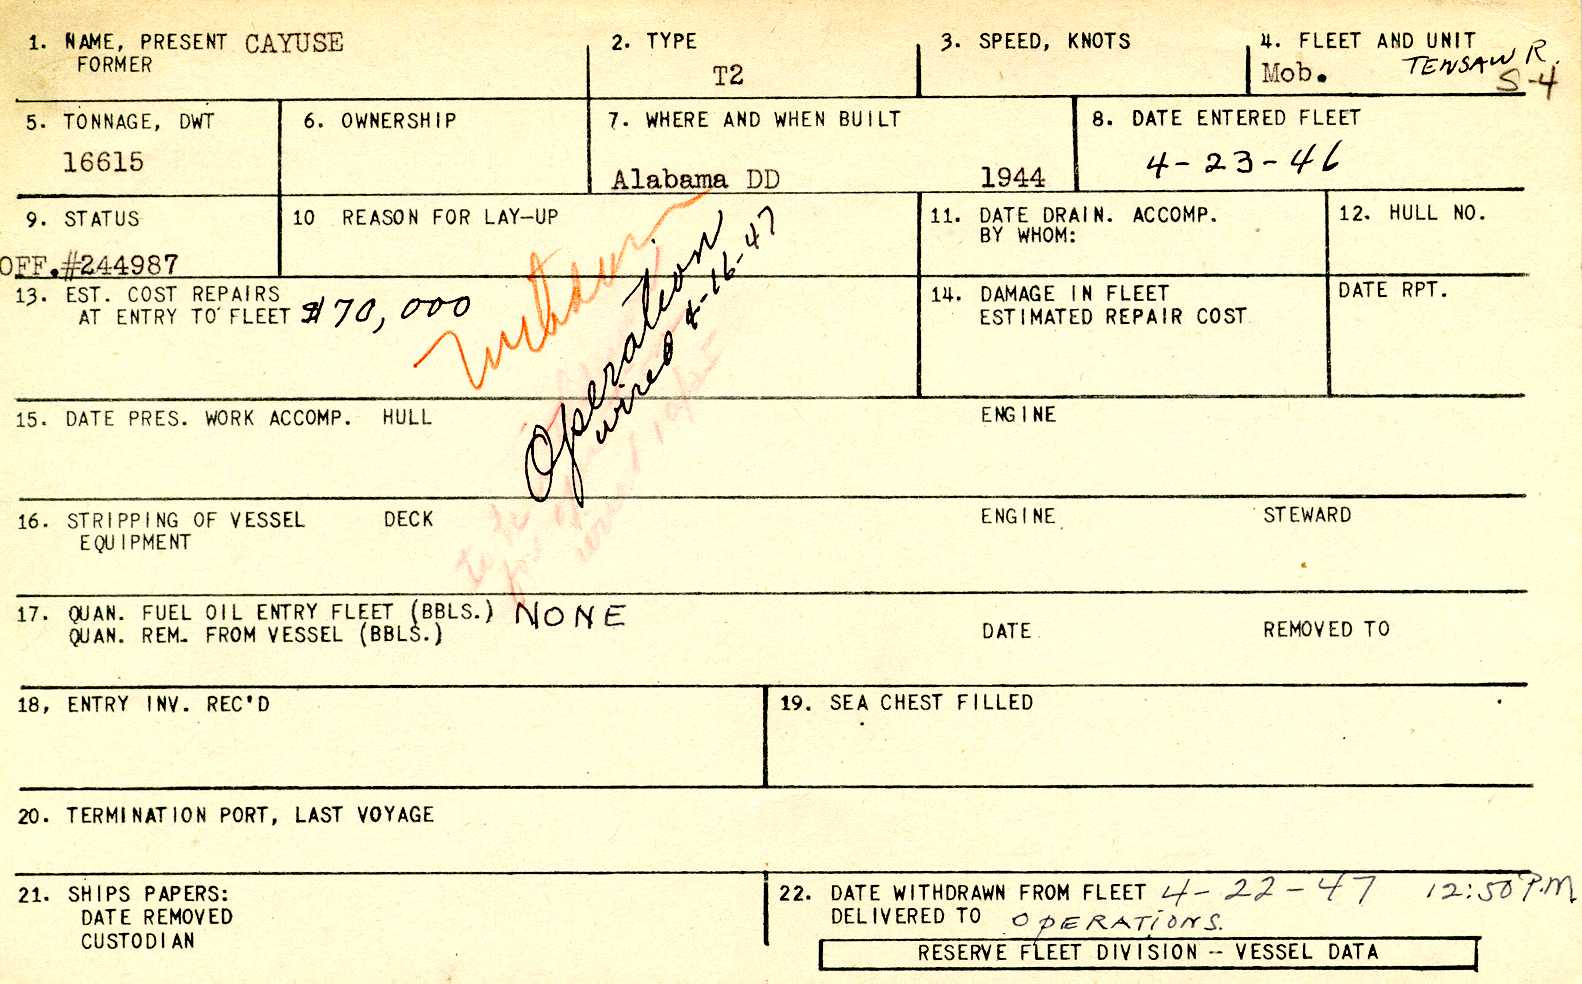 1. NAME, PRESENT CAYUSE
FORMER
2. TYPE
T2
3. SPEED, KNOTS
4. FLEET AND UNIT
Mob. TENSAW R.
S-4
5. TONNAGE, DWT
16615
6. OWNERSHIP
7. WHERE AND WHEN BUILT
Alabama DD 1944
8. DATE ENTERED FLEET
4-23-46
9. STATUS
OFF.#244987
10 REASON FOR LAY-UP
11. DATE DRAIN. ACCOMP.
BY WHOM:
12. HULL NO.
13. EST. COST REPAIRS
AT ENTRY TO FLEET $70,000
Withdrawn
Operation
wired 4-16-47
14. DAMAGE IN FLEET
ESTIMATED REPAIR COST
DATE RPT.
15. DATE PRES. WORK ACCOMP. HULL
ENGINE
16. STRIPPING OF VESSEL DECK
EQUIPMENT
ENGINE
STEWARD
17. QUAN. FUEL OIL ENTRY FLEET (BBLS.) NONE
QUAN. REM. FROM VESSEL (BBLS.)
DATE
REMOVED TO
18, ENTRY INV. REC'D
19. SEA CHEST FILLED
20. TERMINATION PORT, LAST VOYAGE
21. SHIPS PAPERS:
DATE REMOVED
CUSTODIAN
22. DATE WITHDRAWN FROM FLEET 4-22-47 12:50 P.M
DELIVERED TO OPERATIONS.
RESERVE FLEET DIVISION -- VESSEL DATA